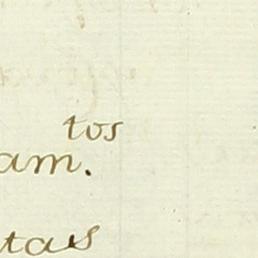 tos
am.
tas